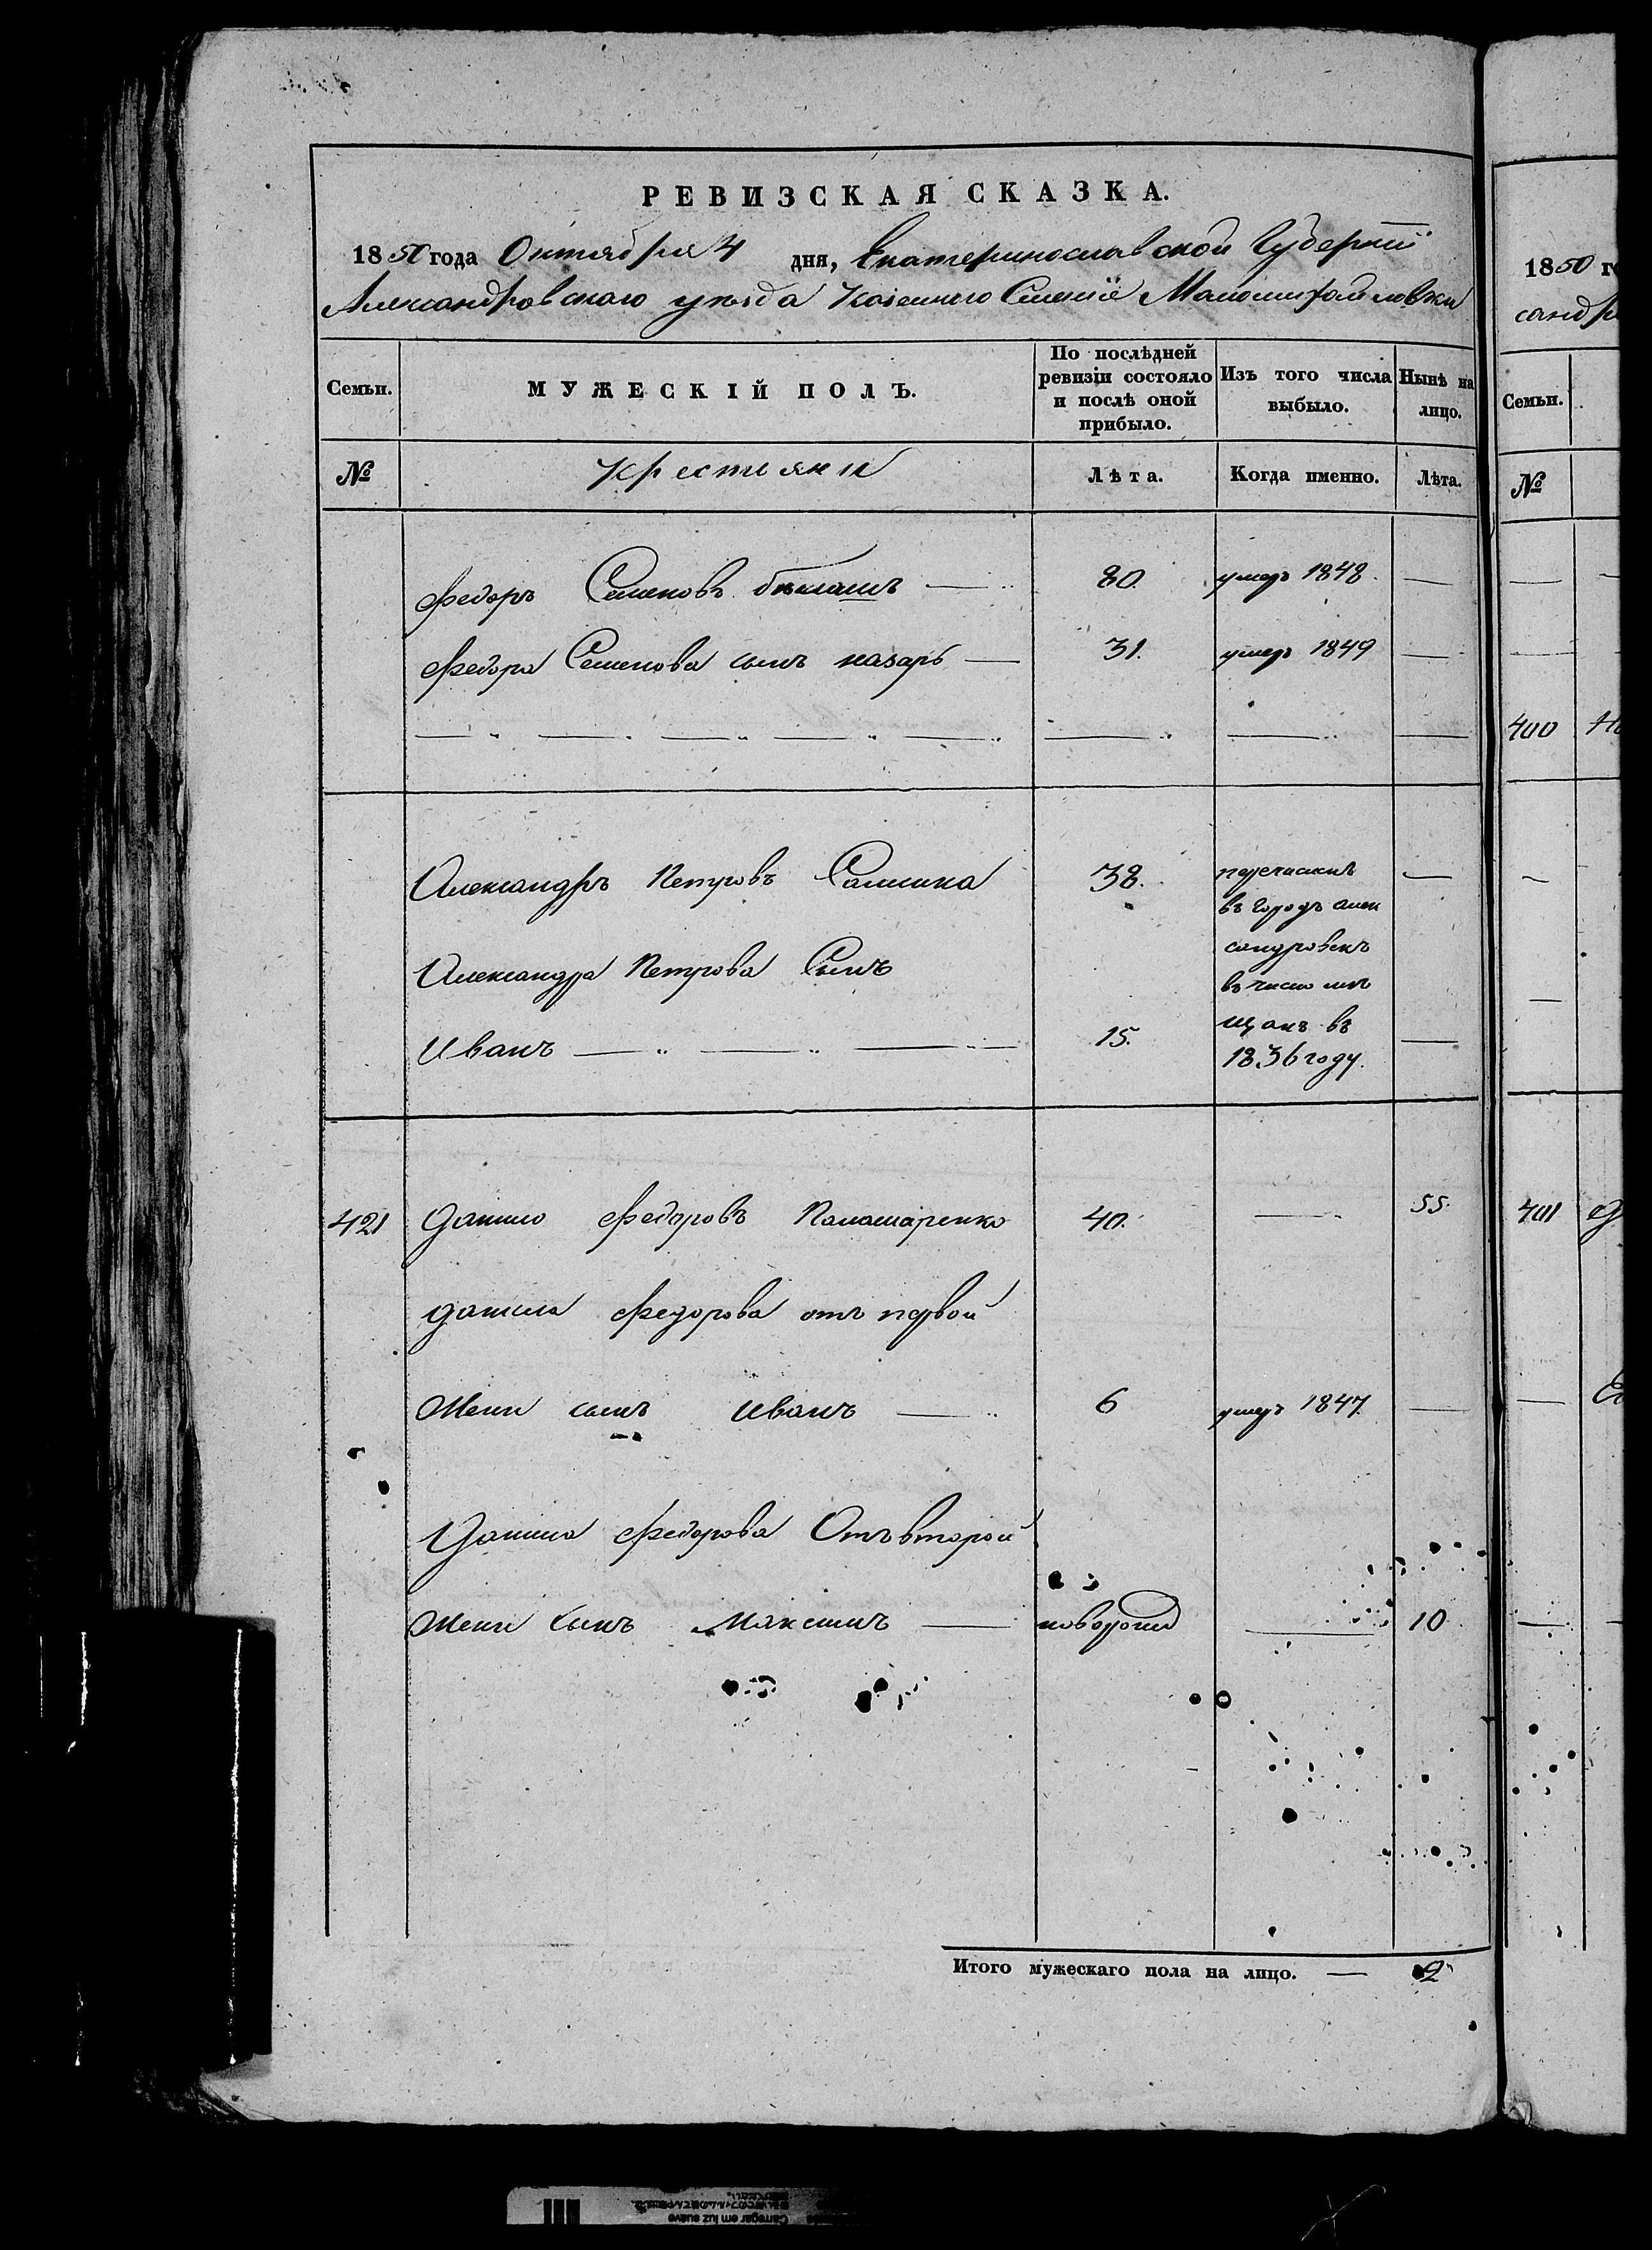 РЕВИЗСКАЯ СКАЗКА.
1850 года Октября 4 дня, Екатеринославской Губернии
Александровского уезда Казенного Селенія Маломихайловки
Семьи. МУЖЕСКІЙ ПОЛЪ. По послѣдней ревизіи состояло и послѣ оной прибыло. Изъ того числа выбыло. Нынѣ на лицо.
№ Крестьяни Лѣта. Когда именно. Лѣта.
Федоръ Семеновъ 80. умеръ 1848. —
Федора Семенова сынъ назаръ — 31. умеръ 1849 —
Александръ Петровъ 38. перечисленъ —
въ городъ алек
сандровскъ
Александра Петрова Сынъ
въ число мѣ
щанъ въ
Иванъ — 15. —
1836 году.
421 Данило Федоровъ Паламаренко 40. — 55.
данила Федорова отъ первой
жени сынъ Иванъ — 6 умеръ 1847. —
Данила Федорова Отъ второй
жени сынъ Максимъ — новорожд — 10
Итого мужескаго пола на лицо. — 2
1850 го
санд
Семьи.
№
400
401